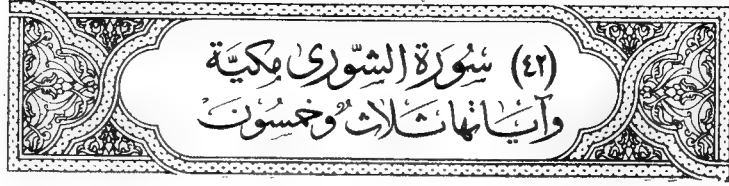 (٤٢) سُورَة الشّورىٰ مكيَّة
وآيَاتها ثَلاثٌ وخمسُونَ